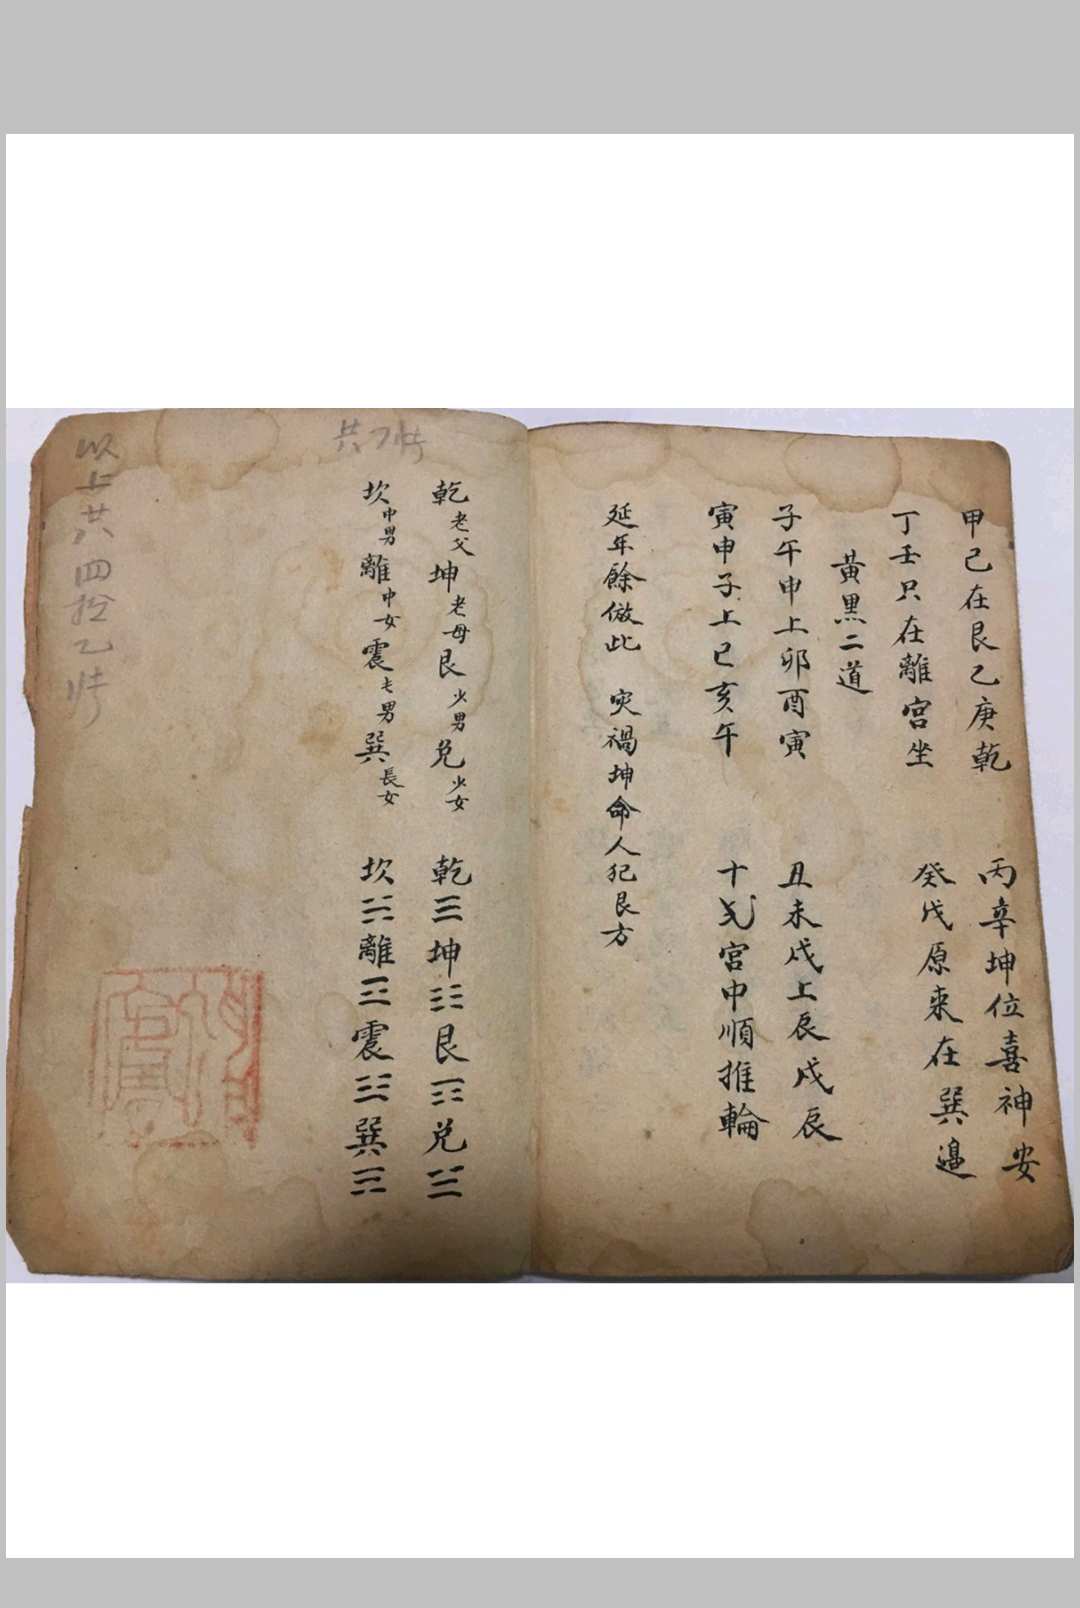 甲己在艮乙庚乾　丙辛坤位喜神安
丁壬只在離宮坐　癸戊原來在巽邊
黃黑二道
子午申上卯酉寅　丑未戌上辰戌辰
寅申子上巳亥午　十弍宮中順推輪
延年餘倣此　災禍坤命人犯艮方
共乙件
乾老父坤老母艮少男兌少女　乾☰坤☷艮☶兌☱
坎中男離中女震長男巽長女　坎☵離☲震☳巽☴
以上共四拾乙件